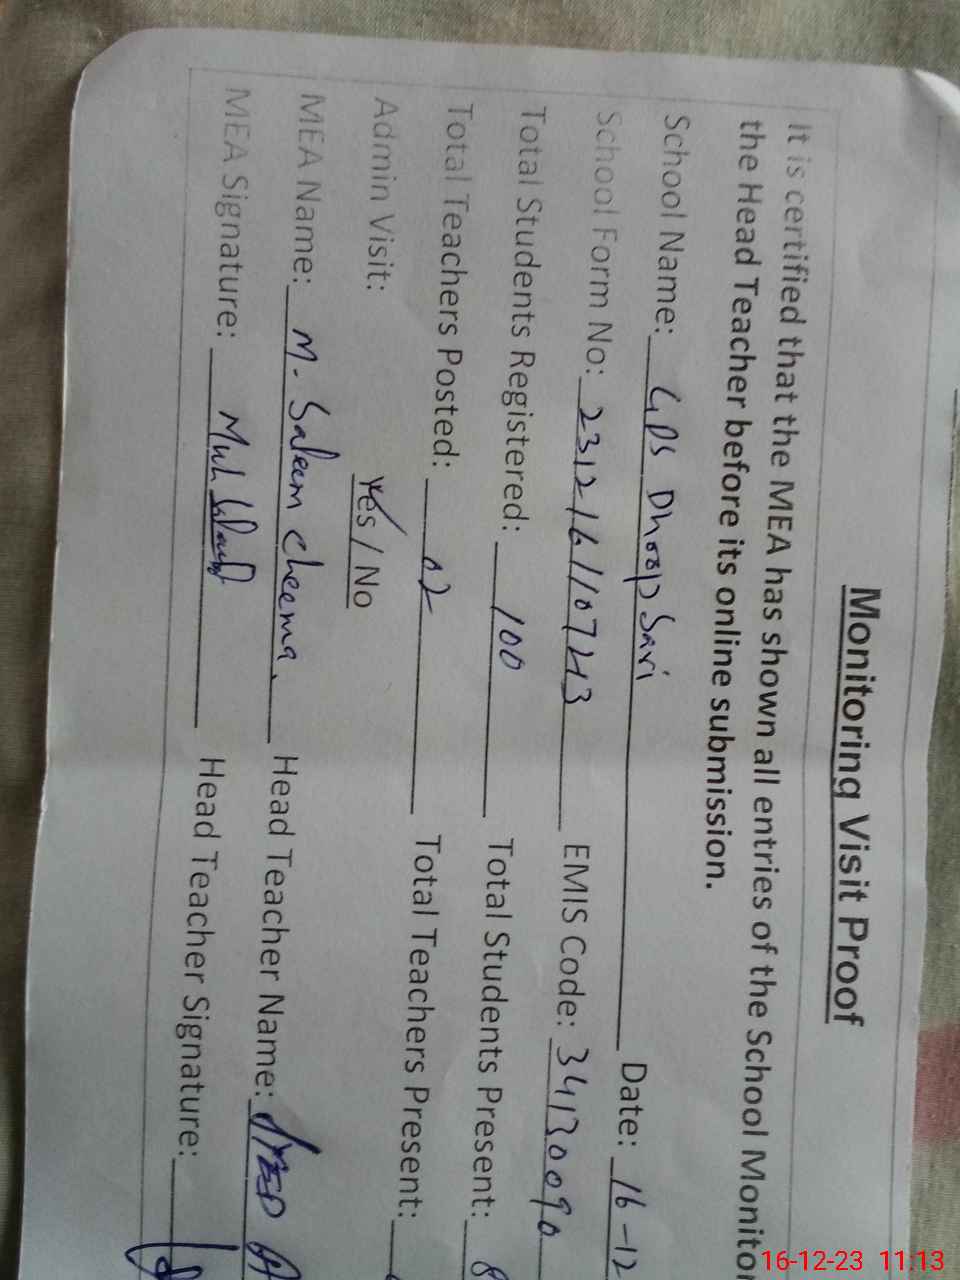 Monitoring Visit Proof
It is certified that the MEA has shown all entries of the School Monitor
the Head Teacher before its online submission.
School Name: GPS Dhoop Sari Date: 16-12
School Form No: 231216110743 EMIS Code: 34130090
Total Students Registered: 100 Total Students Present: 8
Total Teachers Posted: 02 Total Teachers Present:
Admin Visit: Yes / No
MEA Name: M. Saleem Cheema Head Teacher Name:
MEA Signature: Head Teacher Signature:
16-12-23 11:13